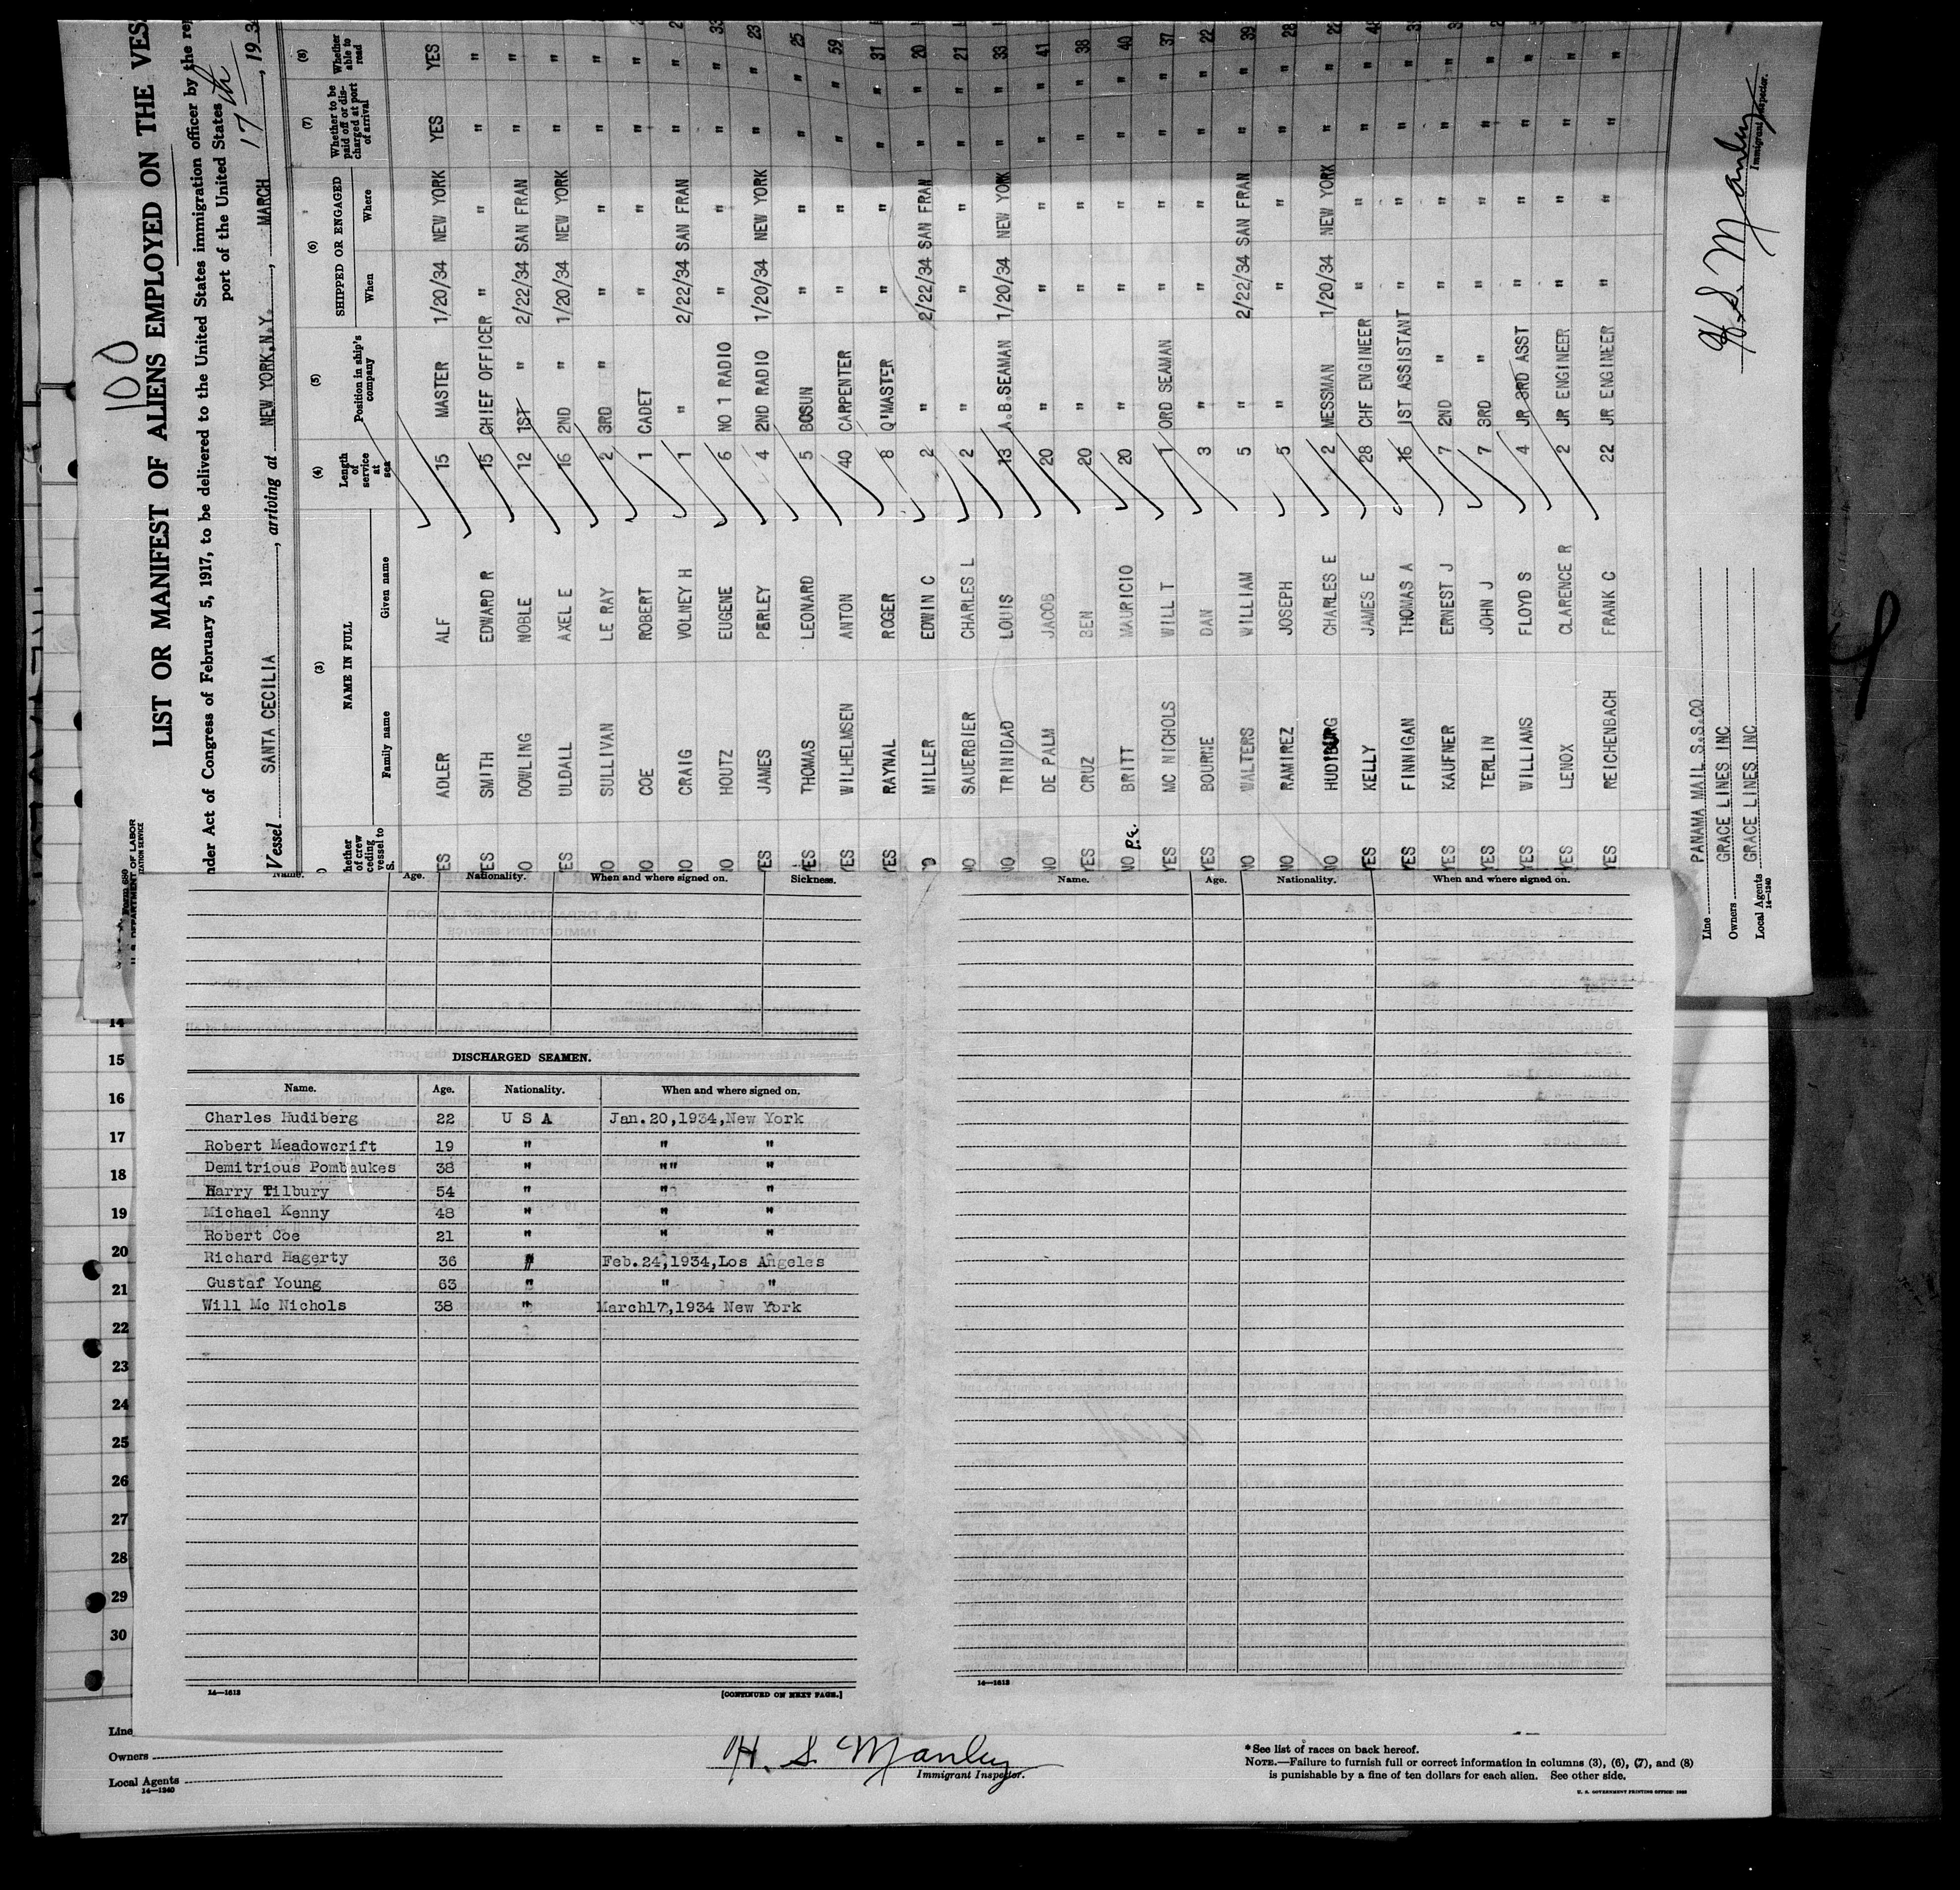 100
LIST OR MANIFEST OF ALIENS EMPLOYED ON THE VES
nder Act of Congress of February 5, 1917, to be delivered to the United States immigration officer by the re
port of the United States
Vessel SANTA CECILIA, arriving at NEW YORK,N.Y., MARCH 17 th, 19 3
(3) (4) (5) (6) (7) (8)
NAME IN FULL Length of service at sea Position in ship's company SHIPPED OR ENGAGED Whether to be paid off or discharged at port of arrival Whether able to read
Family name Given name When Where
ES ADLER ALF 15 MASTER 1/20/34 NEW YORK YES YES
YES SMITH EDWARD R 15 CHIEF OFFICER " " " "
NO DOWLING NOBLE 12 1ST " 2/22/34 SAN FRAN " "
YES ULDALL AXEL E 16 2ND " 1/20/34 NEW YORK " "
NO SULLIVAN LE RAY 2 3RD " " " " "
NO COE ROBERT 1 CADET " " " "
NO CRAIG VOLNEY H 1 " 2/22/34 SAN FRAN " " 2
NO HOUTZ EUGENE 6 NO 1 RADIO " " " " 33
YES JAMES PERLEY 4 2ND RADIO 1/20/34 NEW YORK " " 23
YES THOMAS LEONARD 5 BOSUN " " " " 25
YES WILHELMSEN ANTON 40 CARPENTER " " " " 59
YES RAYNAL ROGER 8 Q'MASTER " " " " 31
MILLER EDWIN C 2 " 2/22/34 SAN FRAN " " 20
NO SAUERBIER CHARLES L 2 " " " " " 21
NO TRINIDAD LOUIS 13 A.B.SEAMAN 1/20/34 NEW YORK " " 33
NO DE PALM JACOB 20 " " " " " 41
YES CRUZ BEN 20 " " " " " 38
NO P.R. BRITT MAURICIO 20 " " " " " 40
YES MC NICHOLS WILL T 1 ORD SEAMAN " " " " 37
YES BOURNE DAN 3 " " " " " 22
NO WALTERS WILLIAM 5 " 2/22/34 SAN FRAN " " 39
NO RAMIREZ JOSEPH 5 " " " " " 28
NO HUDIBURG CHARLES E 2 MESSMAN 1/20/34 NEW YORK " " 22
YES KELLY JAMES E 28 CHF ENGINEER " " " " 4
YES FINNIGAN THOMAS A 16 1ST ASSISTANT " " " " 3
YES KAUFNER ERNEST J 7 2ND " " " " " 3
YES TERLIN JOHN J 7 3RD " " " " " 2
YES WILLIAMS FLOYD S 4 JR 3RD ASST " " " "
YES LENOX CLARENCE R 2 JR ENGINEER " " " "
YES REICHENBACH FRANK C 22 JR ENGINEER " " " "
Line PANAMA MAIL S.S.CO
Owners GRACE LINES INC
Local Agents GRACE LINES INC
14—1240
H. S. Manley
Immigrant Inspector.
Name. Age. Nationality. When and where signed on. Sickness.
DISCHARGED SEAMEN.
Name. Age. Nationality. When and where signed on.
Charles Hudiberg 22 U S A Jan.20,1934,New York
Robert Meadowcrift 19 " " "
Demitrious Pombaukes 38 " "" "
Harry Tilbury 54 " " "
Michael Kenny 48 " " "
Robert Coe 21 " " "
Richard Hagerty 36 " Feb.24,1934,Los Angeles
Gustaf Young 63 " " "
Will Mc Nichols 38 " March17,1934 New York
14—1613
[CONTINUED ON NEXT PAGE.]
Name. Age. Nationality. When and where signed on.
14—1613
14
15
16
17
18
19
20
21
22
23
24
25
26
27
28
29
30
Line
Owners
Local Agents
14—1240
H. S. Manley
Immigrant Inspector.
*See list of races on back hereof.
NOTE.—Failure to furnish full or correct information in columns (3), (6), (7), and (8)
is punishable by a fine of ten dollars for each alien. See other side.